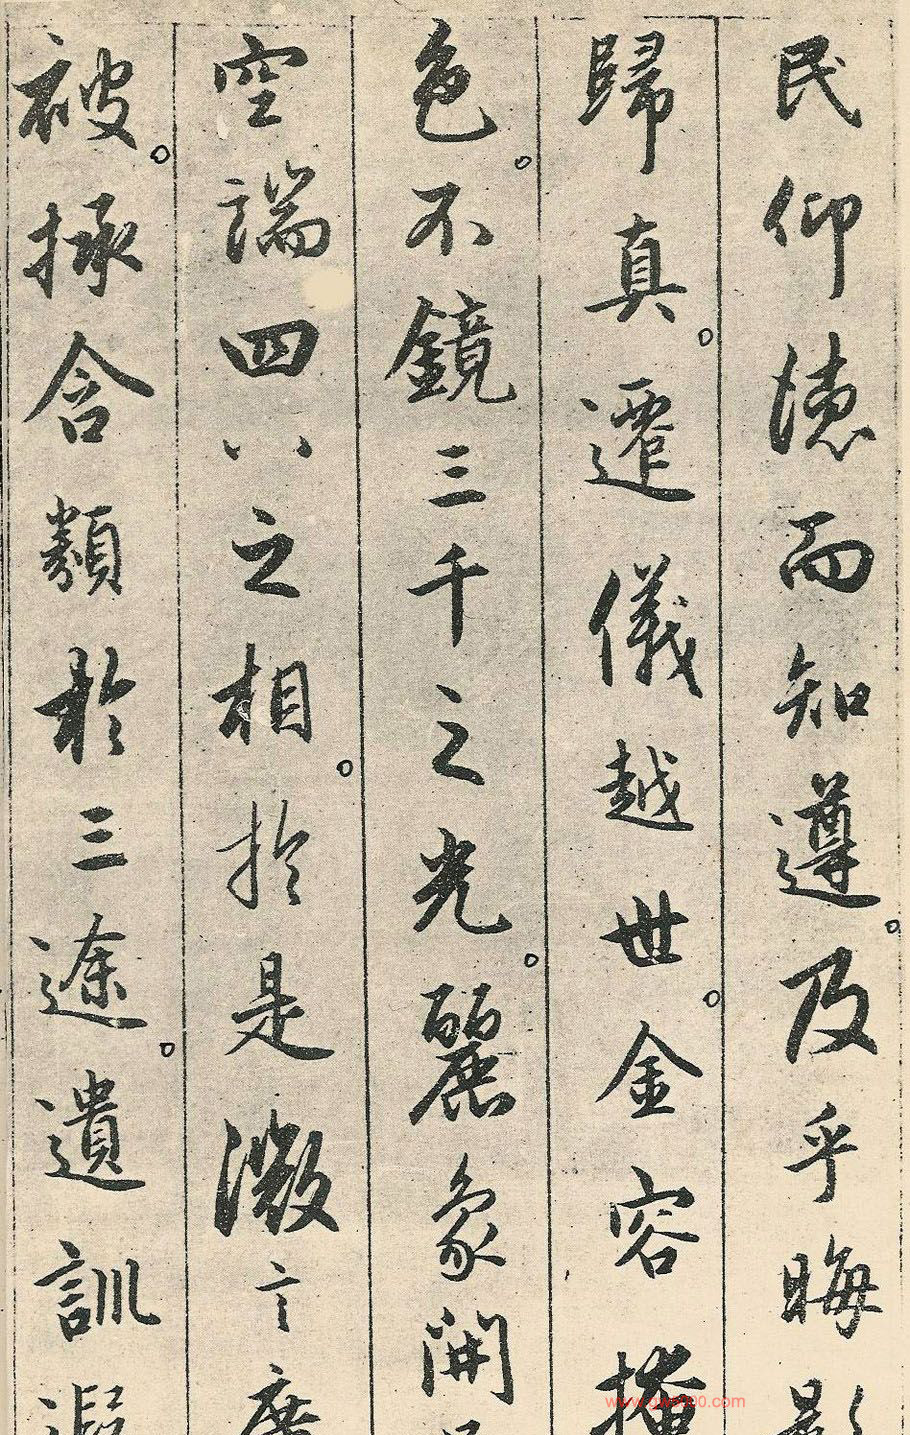 民仰德而知遵。及乎晦影
歸真。遷儀越世。金容掩
色。不鏡三千之光。麗象開
空端四八之相。於是微言廣
被。拯含類於三途。遺訓遐
www.gw5300.com